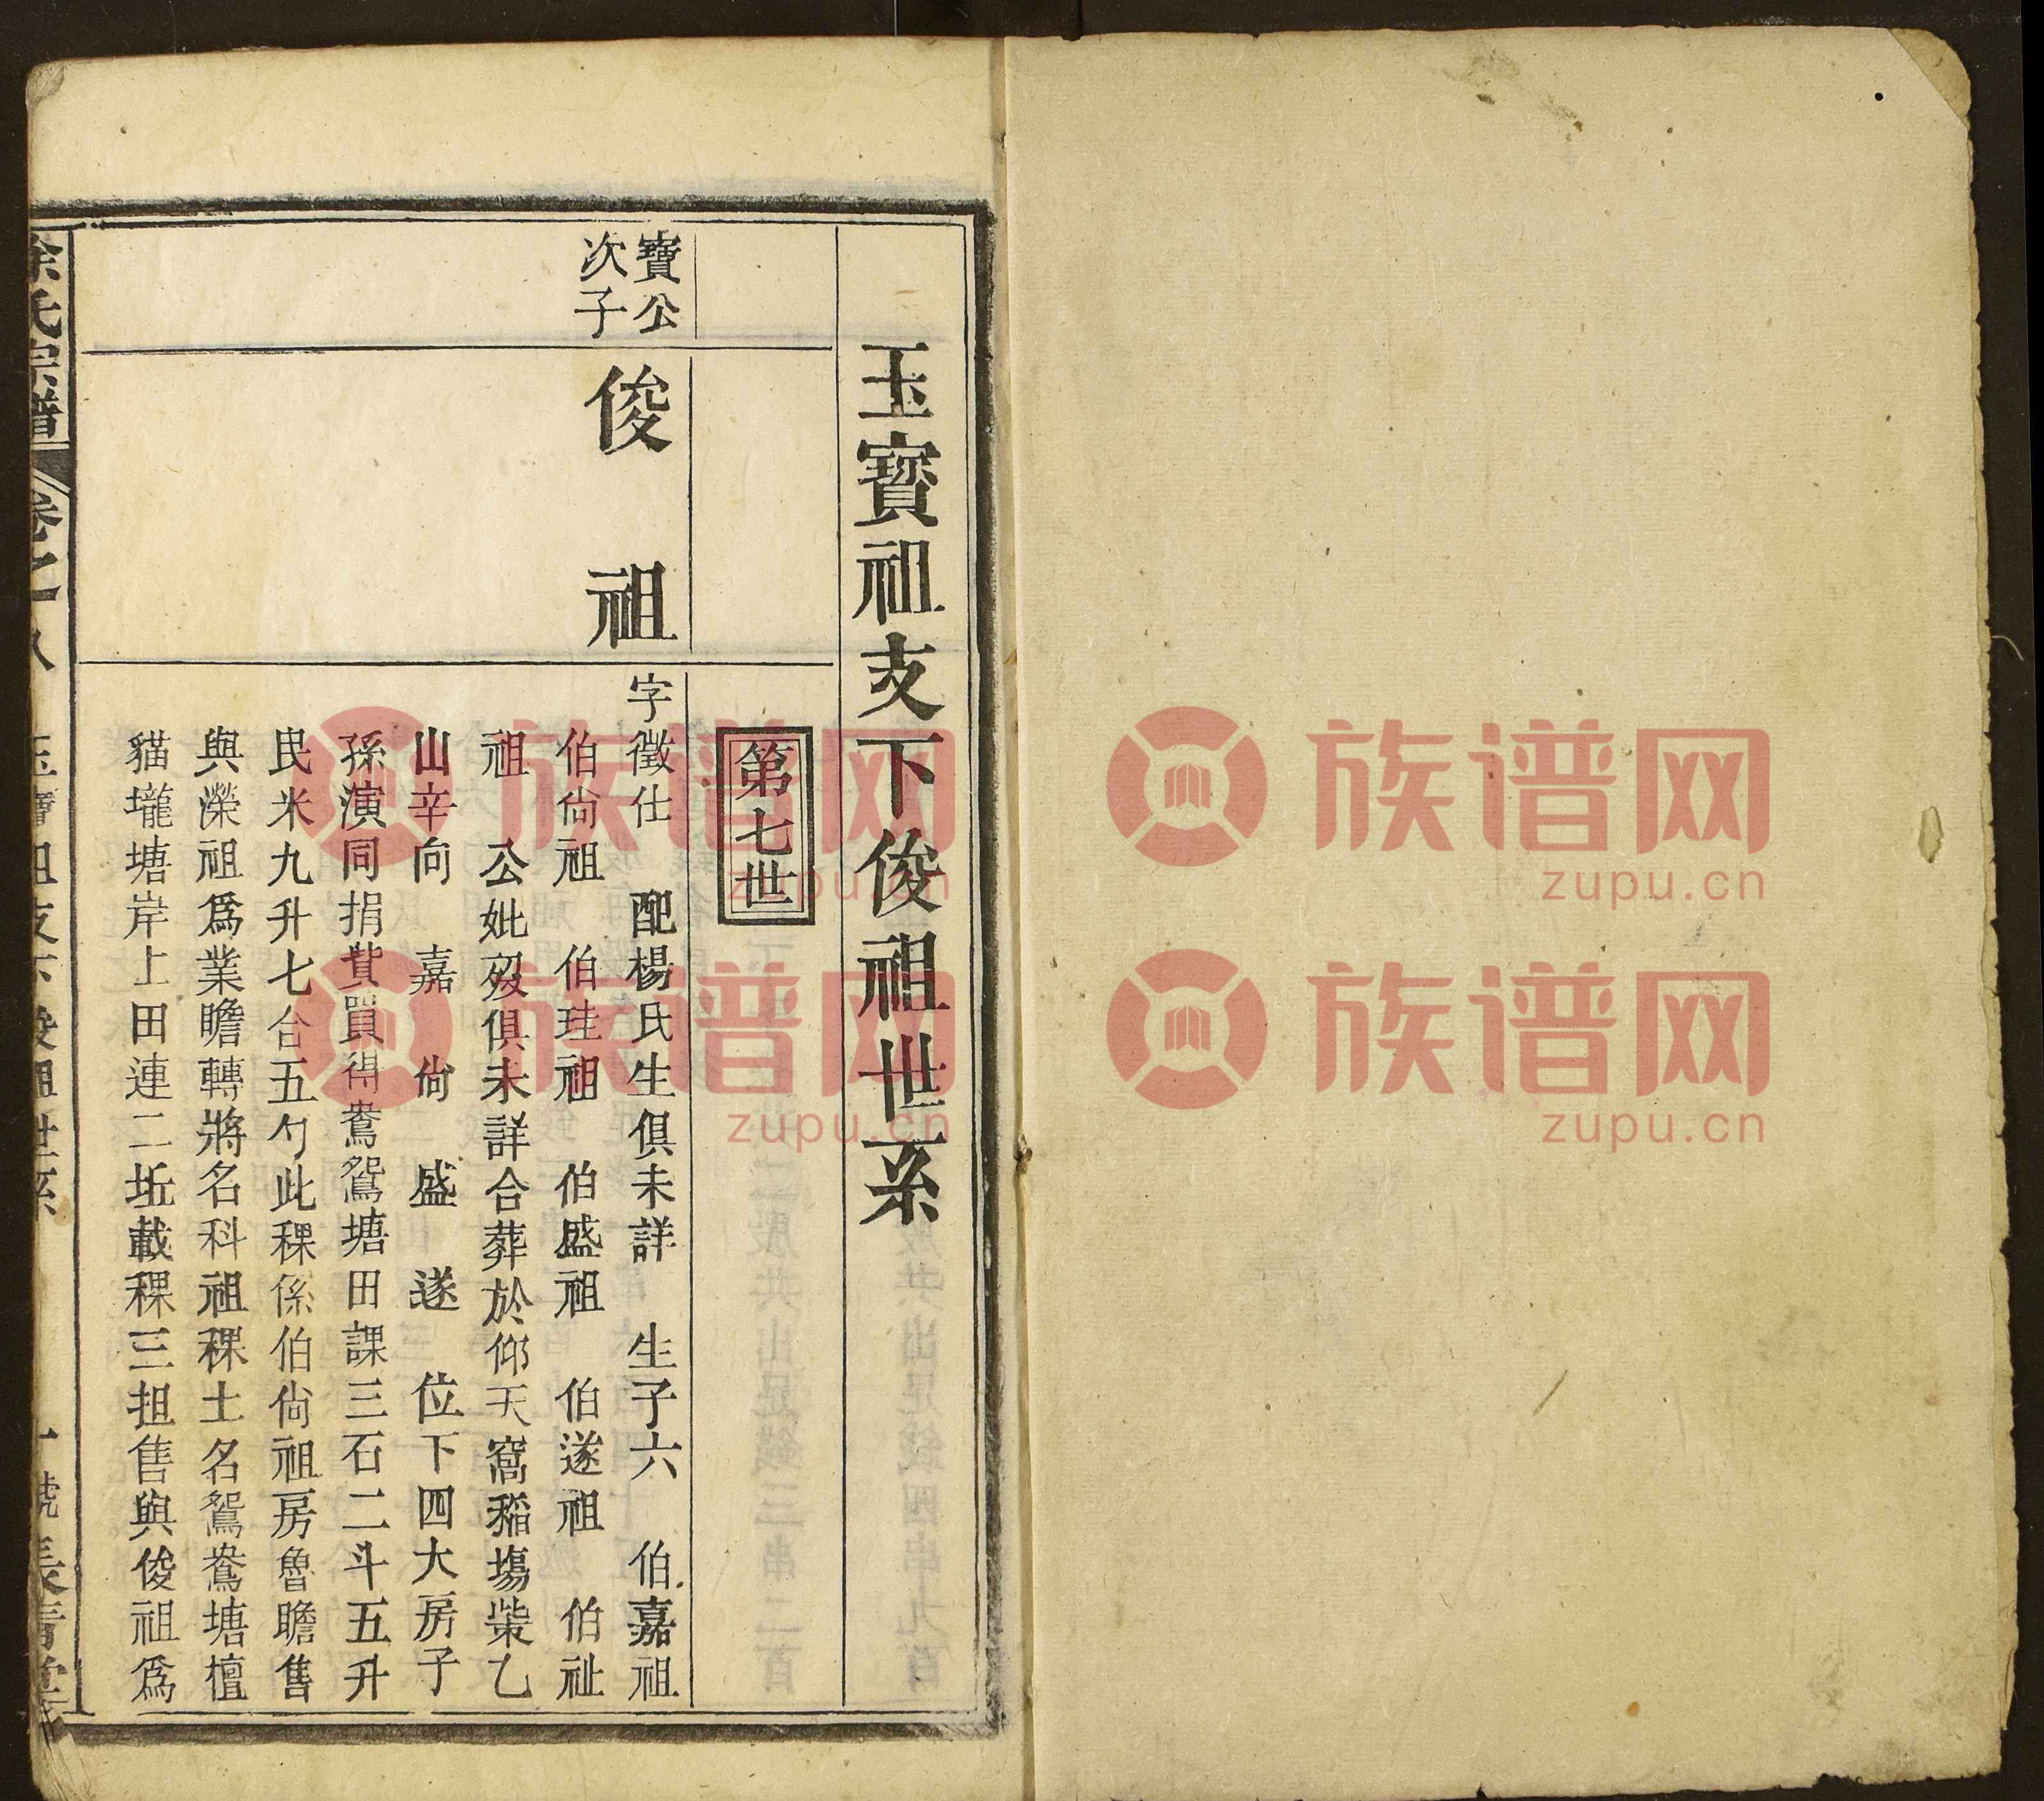 玉寶祖支下俊祖世系
第七世
寶公
次子
俊祖
字徵仕 配楊氏生俱未詳 生子六 伯嘉祖
伯尙祖 伯珪祖 伯盛祖 伯遂祖 伯祉
祖 公妣歿俱未詳合葬於仰天窩稻塲柴乙
山辛向 嘉 尙 盛 遂 位下四大房子
孫演同捐貲買得鴦鴛塘田課三石二斗五升
民米九升七合五勺此稞係伯尙祖房魯瞻售
與濚祖爲業瞻轉將名科祖稞土名鴛鴦塘檀
貓壠塘岸上田連二坵載稞三担售與俊祖爲
氏宗譜 卷之八 玉寶祖支下俊祖世系 一號長青堂
族谱网
zupu.cn
族谱网
zupu.cn
族谱网
zupu.cn
族谱网
zupu.cn